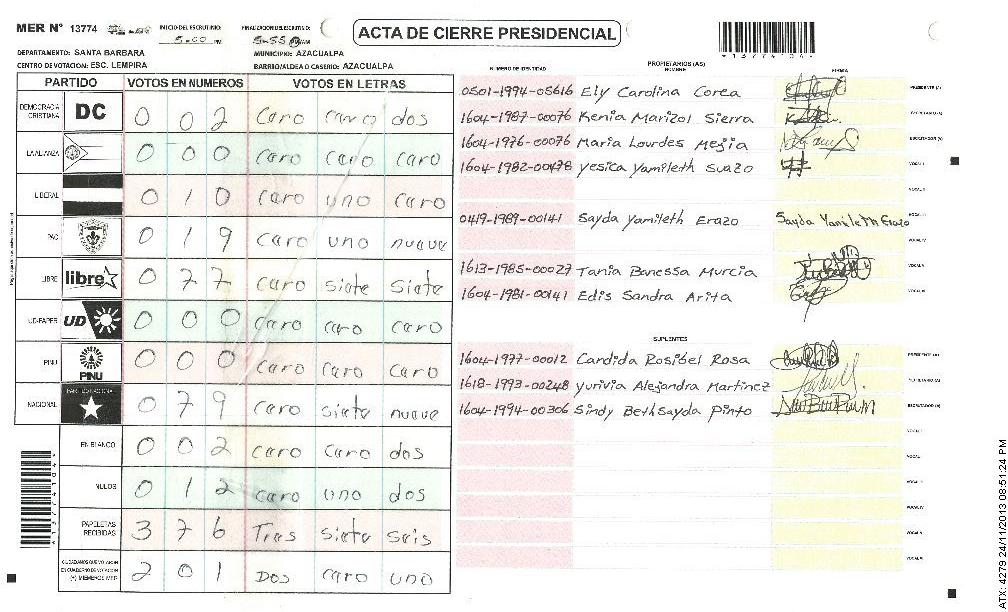 MER N° 13774
INICIO DEL ESCRUTINIO:
5:00 PM
FINALIZACION DEL ESCRUTINIO:
ACTA DE CIERRE PRESIDENCIAL
*13774104*
DEPARTAMENTO: SANTA BARBARA
MUNICIPIO: AZACUALPA
CENTRO DE VOTACION: ESC. LEMPIRA
BARRIO/ALDEA O CASERIO: AZACUALPA
PARTIDO VOTOS EN NUMEROS VOTOS EN LETRAS
DEMOCRACIA CRISTIANA DC 0 0 2 caro caro dos
LA ALIANZA 0 0 0 caro caro caro
LIBERAL 0 1 0 caro uno caro
PAC 0 1 9 caro uno nueve
LIBRE libre 0 7 7 caro siete siete
UD-FAPER UD 0 0 0 caro caro caro
PINU PINU 0 0 0 caro caro caro
NACIONAL 0 7 9 caro siete nueve
EN BLANCO 0 0 2 caro caro dos
NULOS 0 1 2 caro uno dos
PAPELETAS RECIBIDAS 3 7 6 Tres siete seis
CIUDADANOS QUE VOTARON EN CUADERNO DE VOTACION (+) MIEMBROS MER 2 0 1 Dos caro uno
NUMERO DE IDENTIDAD PROPIETARIOS (AS) NOMBRE FIRMA
0501-1994-05616 Ely Carolina Corea PRESIDENTE (A)
1604-1987-00076 Kenia Marizol Sierra SECRETARIO (A)
1604-1976-00076 Maria Lourdes Mejia ESCRUTADOR (A)
1604-1982-00478 yesica Yamileth Suazo VOCAL I
VOCAL II
0419-1989-00141 Sayda Yamileth Erazo Sayda Yamileth Erazo VOCAL III
VOCAL IV
1613-1985-00027 Tania Banessa Murcia VOCAL V
1604-1981-00141 Edis Sandra Arita VOCAL VI
SUPLENTES
1604-1977-00012 Candida Rosibel Rosa PRESIDENTE (A)
1618-1993-00248 yurivia Alejandra Martinez SECRETARIO (A)
1604-1994-00306 Sindy Bethsayda Pinto ESCRUTADOR (A)
VOCAL I
VOCAL II
VOCAL III
VOCAL IV
VOCAL V
VOCAL VI
*13774104*
ATX: 4279 24/11/2013 08:51:24 PM